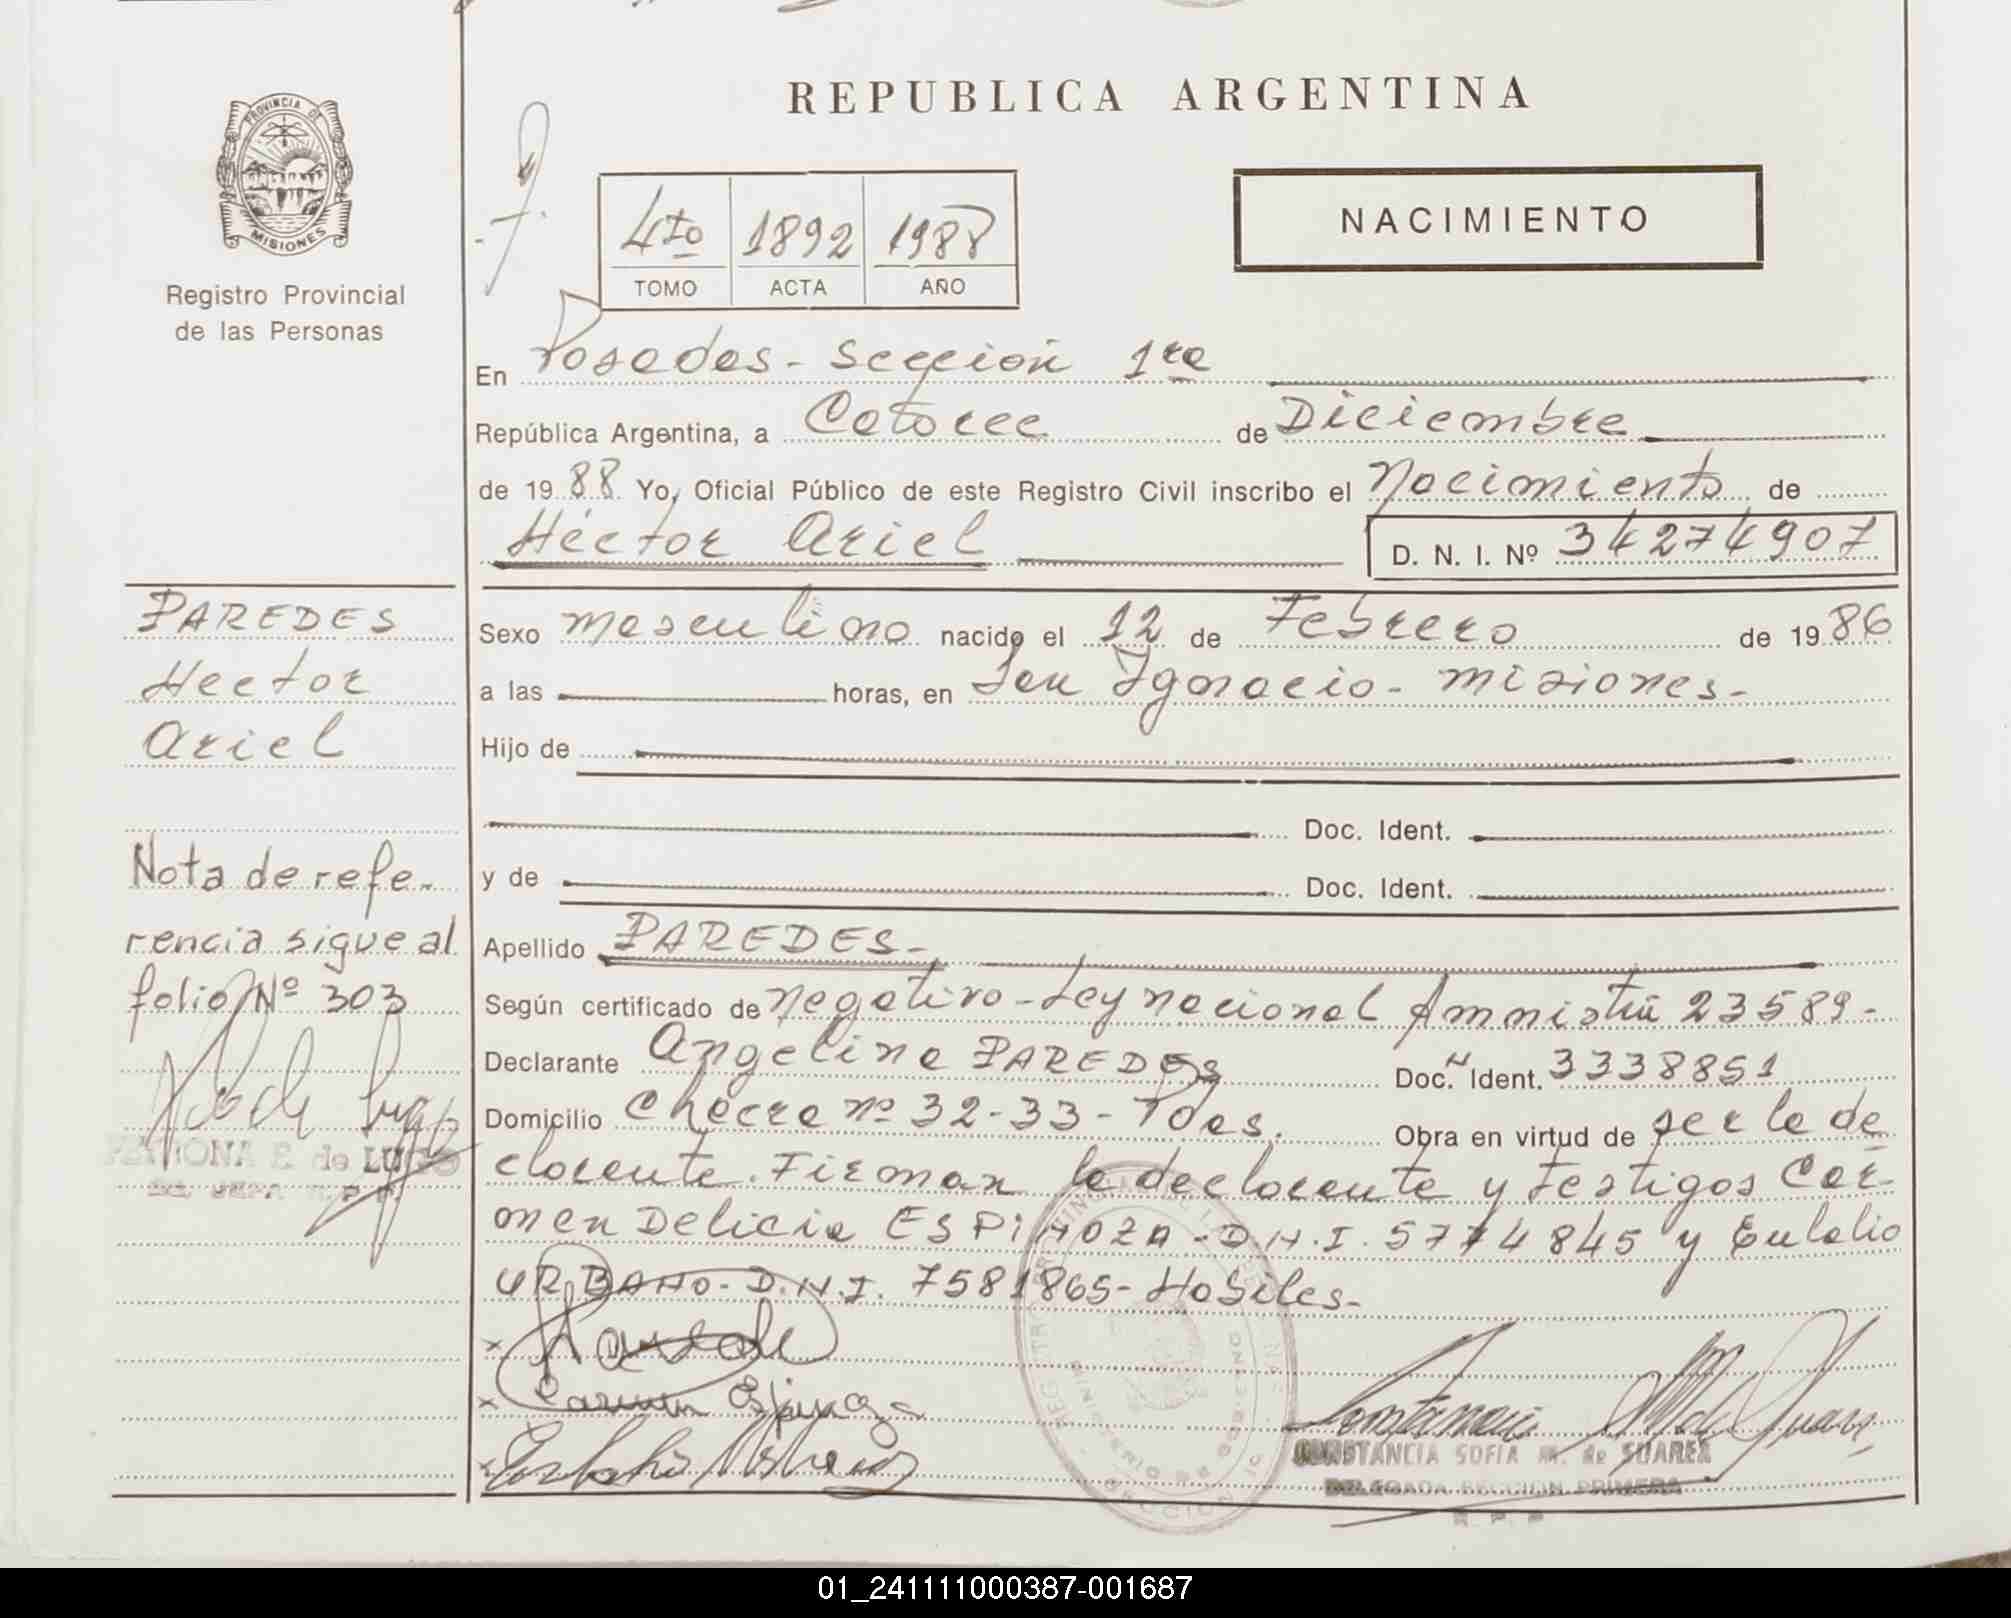 REPUBLICA ARGENTINA
PROVINCIA DE
MISIONES
Registro Provincial
de las Personas
4to 1892 1988
TOMO ACTA AÑO
NACIMIENTO
En Posadas - Sección 1ra
República Argentina, a Catorce de Diciembre
de 1988 Yo, Oficial Público de este Registro Civil inscribo el Nacimiento de
Héctor Ariel D. N. I. Nº 34274907
PAREDES
Hector
Ariel
Nota de refe-
rencia sigue al
folio Nº 303
PETRONA E. de LUGO
Sexo masculino nacido el 12 de Febrero de 1986
a las horas, en San Ignacio - Misiones -
Hijo de
Doc. Ident.
y de Doc. Ident.
Apellido PAREDES -
Según certificado de negativo - Ley nacional Amnistía 23589 -
Declarante Angelina PAREDES Doc. Ident. 3338851
Domicilio Chacra nº 32-33 - Pdas. Obra en virtud de ser la de
clarante. Firman la declarante y testigos Car-
men Delicia ESPINOZA - D.N.I. 5774845 y Eulalio
URBANO - D.N.I. 7581865 - Habiles -
Carmen Espinoza
CONSTANCIA SOFIA M. de SUAREZ
DELEGADA SECCION PRIMERA
R. P. P.
01_241111000387-001687